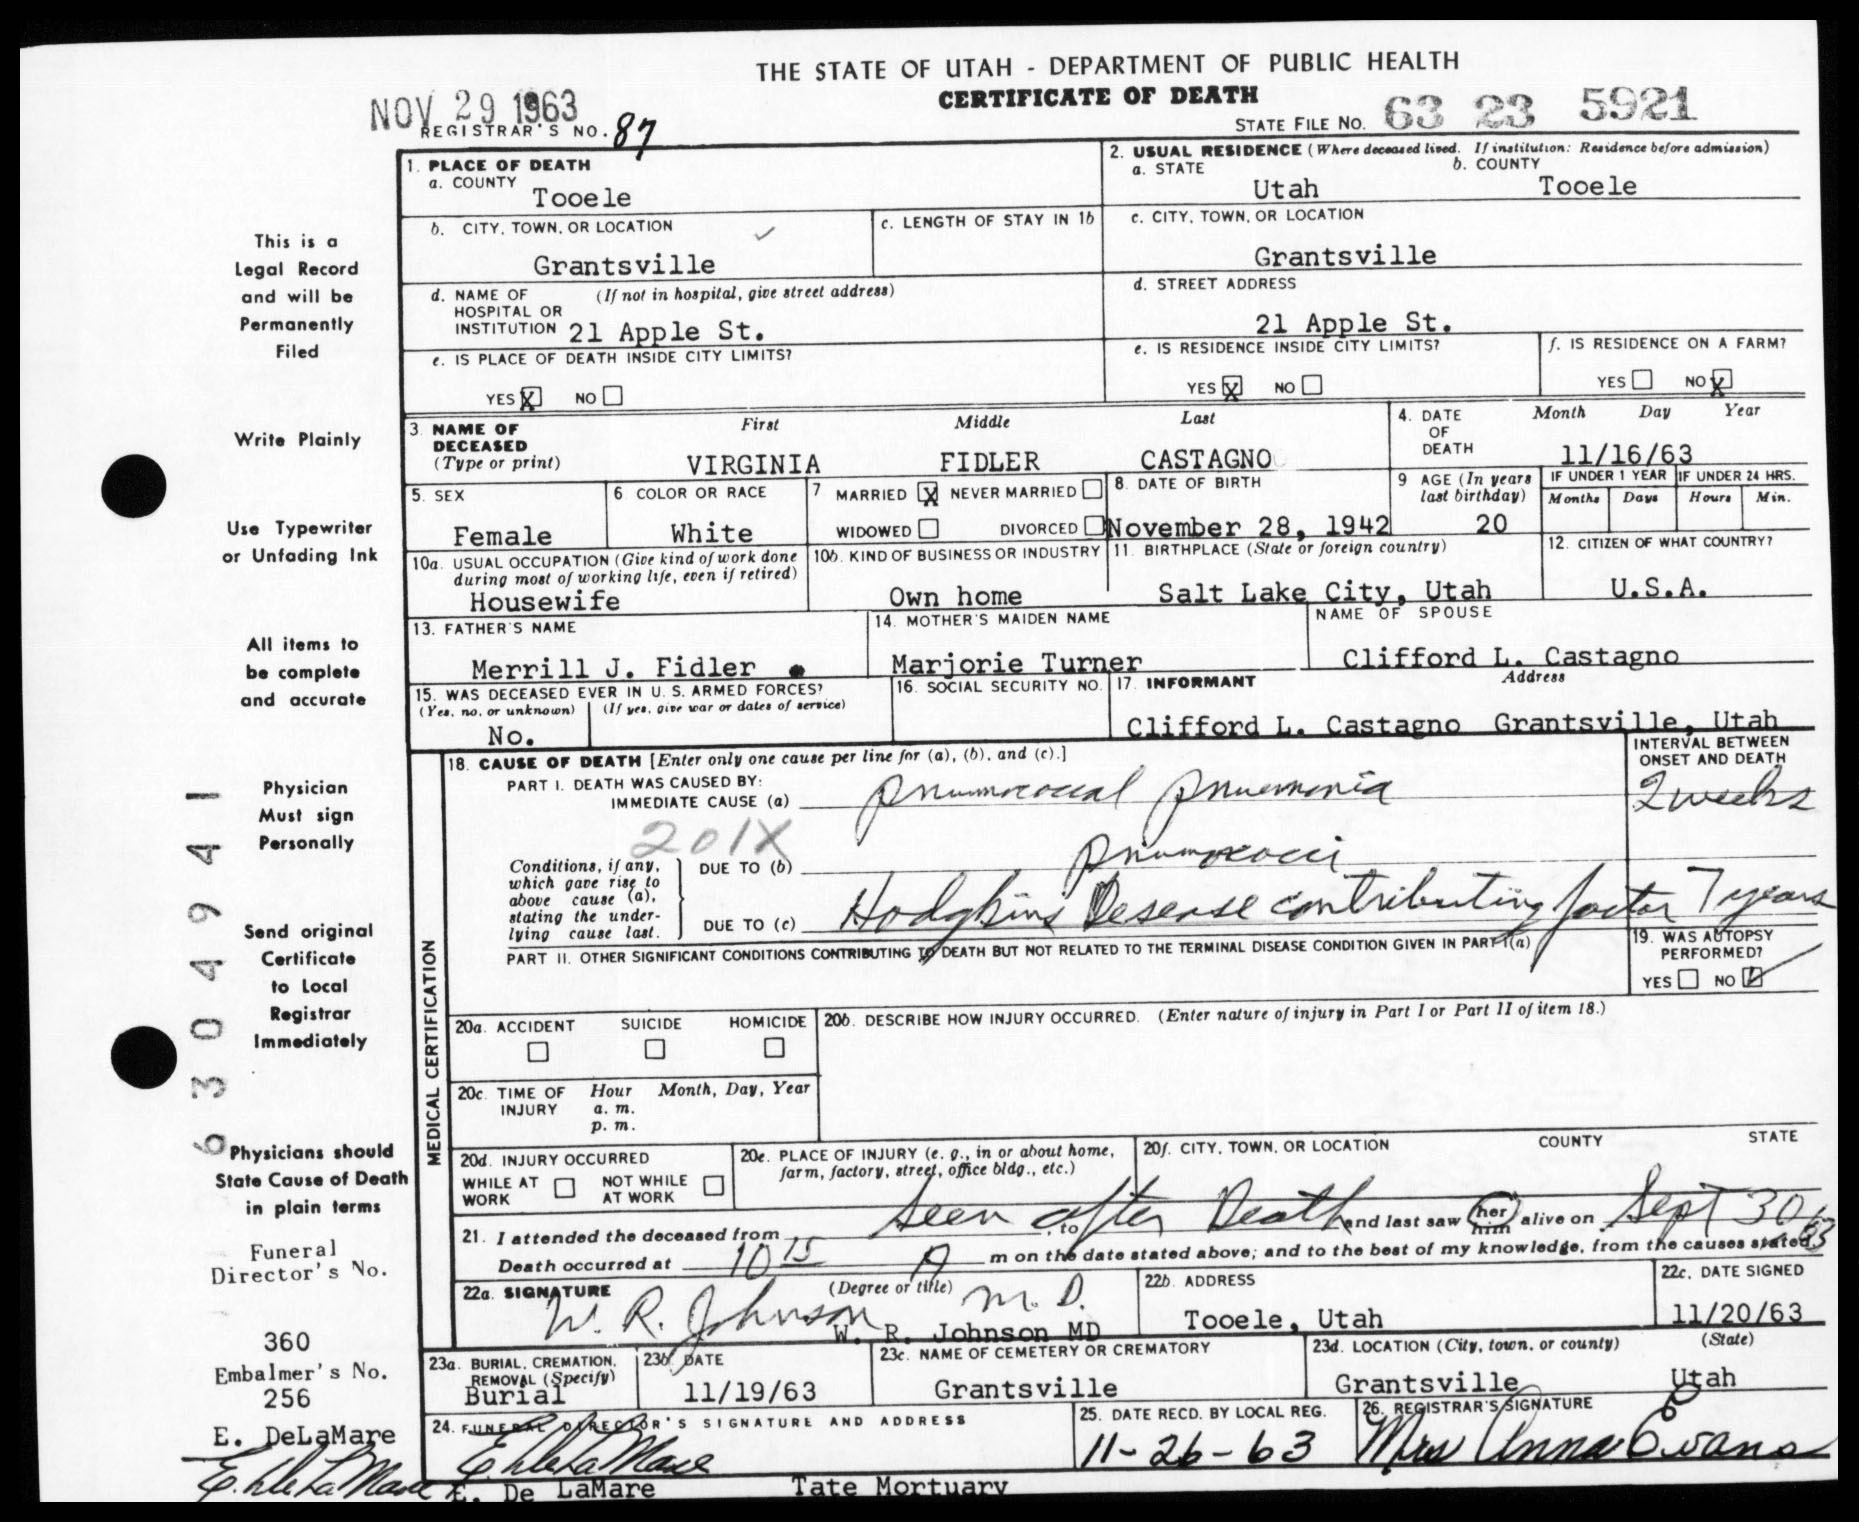 THE STATE OF UTAH - DEPARTMENT OF PUBLIC HEALTH
CERTIFICATE OF DEATH
NOV 29 1963
REGISTRAR'S NO. 87
STATE FILE NO. 63 23 5921
This is a
Legal Record
and will be
Permanently
Filed
Write Plainly
Use Typewriter
or Unfading Ink
All items to
be complete
and accurate
Physician
Must sign
Personally
Send original
Certificate
to Local
Registrar
Immediately
Physicians should
State Cause of Death
in plain terms
Funeral
Director's No.
360
Embalmer's No.
256
E. DeLaMare
6304941
1. PLACE OF DEATH
a. COUNTY
Tooele
2. USUAL RESIDENCE (Where deceased lived. If institution: Residence before admission)
a. STATE b. COUNTY
Utah Tooele
b. CITY, TOWN, OR LOCATION
Grantsville
c. LENGTH OF STAY IN 1b
c. CITY, TOWN, OR LOCATION
Grantsville
d. NAME OF (If not in hospital, give street address)
HOSPITAL OR
INSTITUTION 21 Apple St.
d. STREET ADDRESS
21 Apple St.
e. IS PLACE OF DEATH INSIDE CITY LIMITS?
YES X NO
e. IS RESIDENCE INSIDE CITY LIMITS?
YES X NO
f. IS RESIDENCE ON A FARM?
YES NO X
3. NAME OF DECEASED
(Type or print)
First Middle Last
VIRGINIA FIDLER CASTAGNO
4. DATE OF DEATH
Month Day Year
11/16/63
5. SEX
Female
6. COLOR OR RACE
White
7 MARRIED X NEVER MARRIED
WIDOWED DIVORCED
8. DATE OF BIRTH
November 28, 1942
9 AGE (In years
last birthday)
20
IF UNDER 1 YEAR IF UNDER 24 HRS.
Months Days Hours Min.
10a. USUAL OCCUPATION (Give kind of work done
during most of working life, even if retired)
Housewife
10b. KIND OF BUSINESS OR INDUSTRY
Own home
11. BIRTHPLACE (State or foreign country)
Salt Lake City, Utah
12. CITIZEN OF WHAT COUNTRY?
U.S.A.
13. FATHER'S NAME
Merrill J. Fidler
14. MOTHER'S MAIDEN NAME
Marjorie Turner
NAME OF SPOUSE
Clifford L. Castagno
15. WAS DECEASED EVER IN U.S. ARMED FORCES?
(Yes, no, or unknown) (If yes, give war or dates of service)
No.
16. SOCIAL SECURITY NO.
17. INFORMANT Address
Clifford L. Castagno Grantsville, Utah
MEDICAL CERTIFICATION
18. CAUSE OF DEATH [Enter only one cause per line for (a), (b), and (c).]
INTERVAL BETWEEN
ONSET AND DEATH
PART I. DEATH WAS CAUSED BY:
IMMEDIATE CAUSE (a) pnumococcal pnuemonia 2 weeks
201X
Conditions, if any,
which gave rise to
above cause (a),
stating the under-
lying cause last.
DUE TO (b) pnumococci
DUE TO (c) Hodgkins Desease contributing factor 7 years
PART II. OTHER SIGNIFICANT CONDITIONS CONTRIBUTING TO DEATH BUT NOT RELATED TO THE TERMINAL DISEASE CONDITION GIVEN IN PART I(a)
19. WAS AUTOPSY
PERFORMED?
YES NO
20a. ACCIDENT SUICIDE HOMICIDE
20b. DESCRIBE HOW INJURY OCCURRED. (Enter nature of injury in Part I or Part II of item 18.)
20c. TIME OF INJURY Hour Month, Day, Year
a. m.
p. m.
20d. INJURY OCCURRED
WHILE AT WORK NOT WHILE AT WORK
20e. PLACE OF INJURY (e. g., in or about home,
farm, factory, street, office bldg., etc.)
20f. CITY, TOWN, OR LOCATION COUNTY STATE
21. I attended the deceased from Seen, to after Death and last saw her him alive on Sept 30/63
Death occurred at 10 15 A m on the date stated above; and to the best of my knowledge, from the causes stated.
22a. SIGNATURE (Degree or title)
W. R. Johnson M. D.
W. R. Johnson MD
22b. ADDRESS
Tooele, Utah
22c. DATE SIGNED
11/20/63
23a. BURIAL, CREMATION,
REMOVAL (Specify)
Burial
23b. DATE
11/19/63
23c. NAME OF CEMETERY OR CREMATORY
Grantsville
23d. LOCATION (City, town, or county) (State)
Grantsville Utah
24. FUNERAL DIRECTOR'S SIGNATURE AND ADDRESS
E. De LaMare Tate Mortuary
25. DATE RECD. BY LOCAL REG.
11-26-63
26. REGISTRAR'S SIGNATURE
Mrs Anna Evans